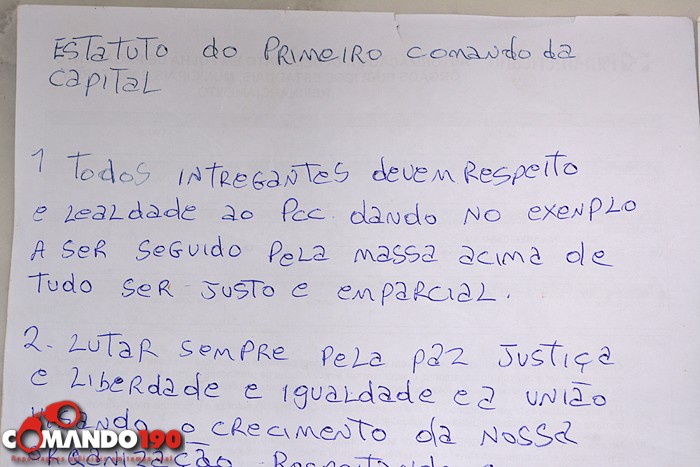 ESTATUTO do PRIMEIRO COMANDO da
CAPITAL
1 Todos INTREGANTES devem Respeito
e Lealdade ao Pcc. dando NO exenplo
A SER SEGUIDO PELA MASSA acima de
Tudo SER JUSTO e emparcial.
2. LUTAR SEMPRE PELA PAZ JUSTIÇA
e LIBERDADE e IGUALDADE e a UNIÃO
o CRECIMENTO da NOSSA
ORGANIZAÇÃO
COMANDO190